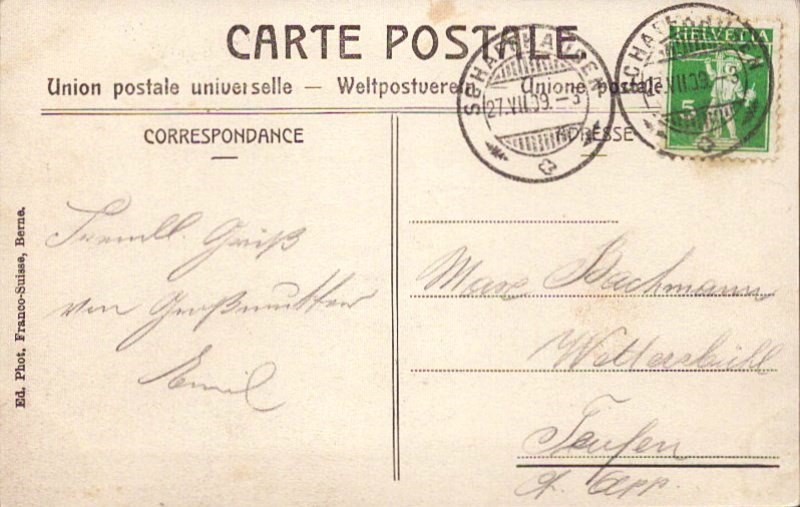 CARTE POSTALE
Union postale universelle — Weltpostverein — Unione postale
SCHAFFHAUSEN
27.VII.09.–3
SCHAFFHAUSEN
VII.09.–3
HELVETIA
5
CORRESPONDANCE
ADRESSE
Freundl. Gruß
von Großmutter
Emil
Max Bachmann
Wettersbühl
Teufen
Ct. App.
Ed. Phot. Franco-Suisse, Berne.